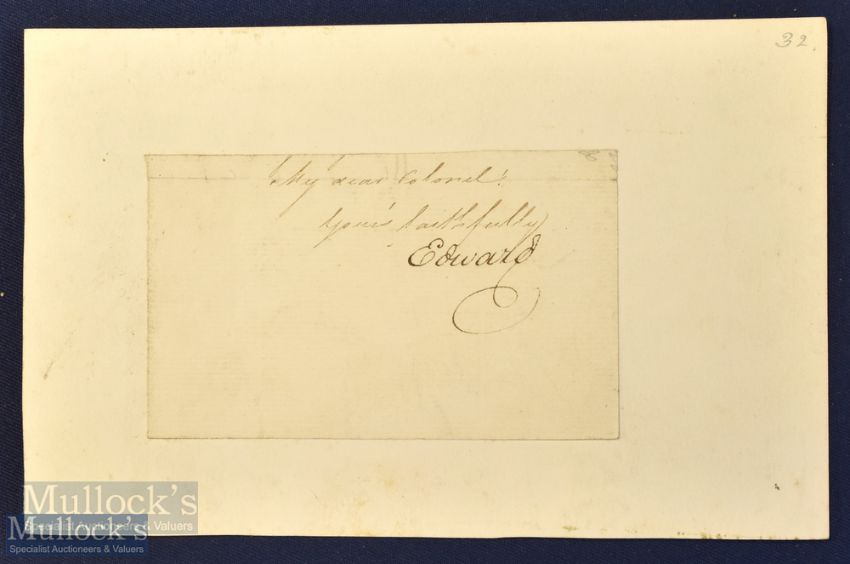 32
My dear Colonel
Yours faithfully
Edward
Mullock's
Specialist Auctioneers & Valuers
Mullock's
Specialist Auctioneers & Valuers